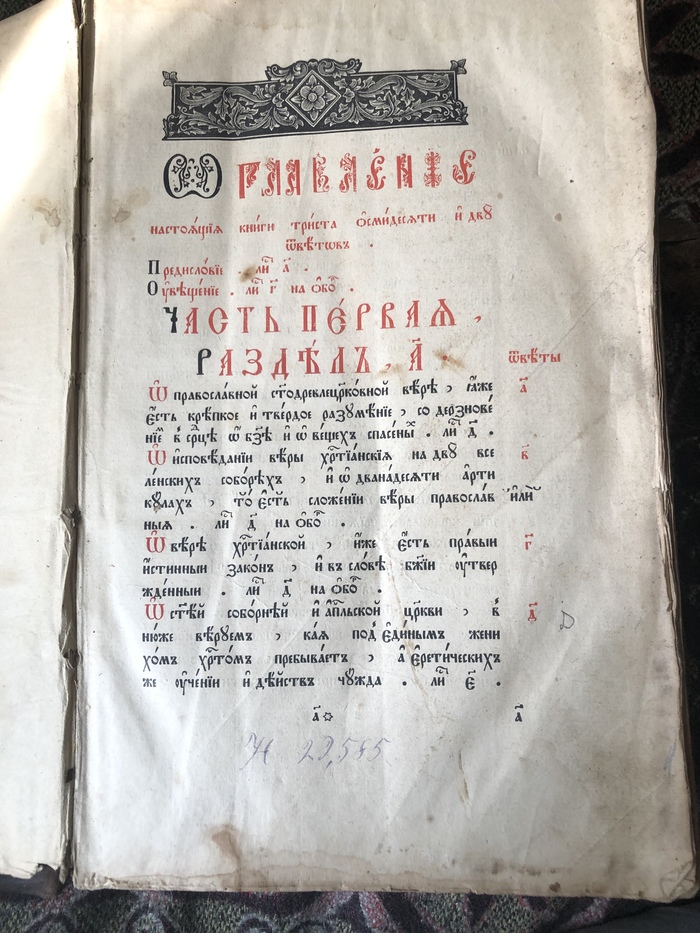 Ѿглавле́нїе
настоѧ́щїѧ кни́ги три́ста ѻ҆сми́десѧти и҆ двꙋ̀
ѿвѣ́товъ .
Предисло́вїе . ли́ст а҃ .
Оу҆вѣще́нїе . ли́ст г҃ на ѻ҆бо́т .
Ча́сть пе́рваѧ ,
Раздѣ́лъ , а҃ .
ѿвѣ́ты
Ѡ҆ правосла́вной ст҃одревлецр҃ко́вной вѣ́рѣ , ꙗ҆́же а҃
є҆́сть крѣ́пкое и҆ тве́рдое разꙋмѣ́нїе , со дерзнове́
нїем в̾ ср҃цѣ ѡ҆ бз҃ѣ и҆ ѡ҆ ве́щехъ спасе́ных . ли́ст д҃ .
Ѡ҆ и҆сповѣ́данїи вѣ́ры хр҇тїа́нскїѧ на двꙋ̀ все в҃
ле́нскихъ собо́рѣхъ , и҆ ѡ҆ двана́десѧти а҆рти
кꙋлахъ , то̀ є҆́сть сложе́нїи вѣ́ры правосла́в и҆лѝ
ныѧ . ли́ст д҃ на ѻ҆бо́т .
Ѡ҆ вѣ́рѣ хр҇тїа́нской , и҆́же є҆́сть пра́выи г҃
и҆́стинныи зако́нъ , и҆ въ сло́вѣ бж҃їи оу҆твер
жде́нныи . ли́ст д҃ на ѻ҆бо́т .
Ѡ҆ ст҃ѣ́й собо́рнѣй и҆ а҆пⷭ҇льской цр҃кви , в̾ д҃
ню́же вѣ́рꙋемъ , ка́ѧ под̾ є҆ди́нымъ жени
хо́мъ хр҇то́мъ пребыва́етъ , а҆ є҆рети́ческихъ
же оу҆че́нїи и҆ дѣ́йствъ чꙋжда̀ . ли́ст є҃ .
а҃ а҃
D
N 22,545